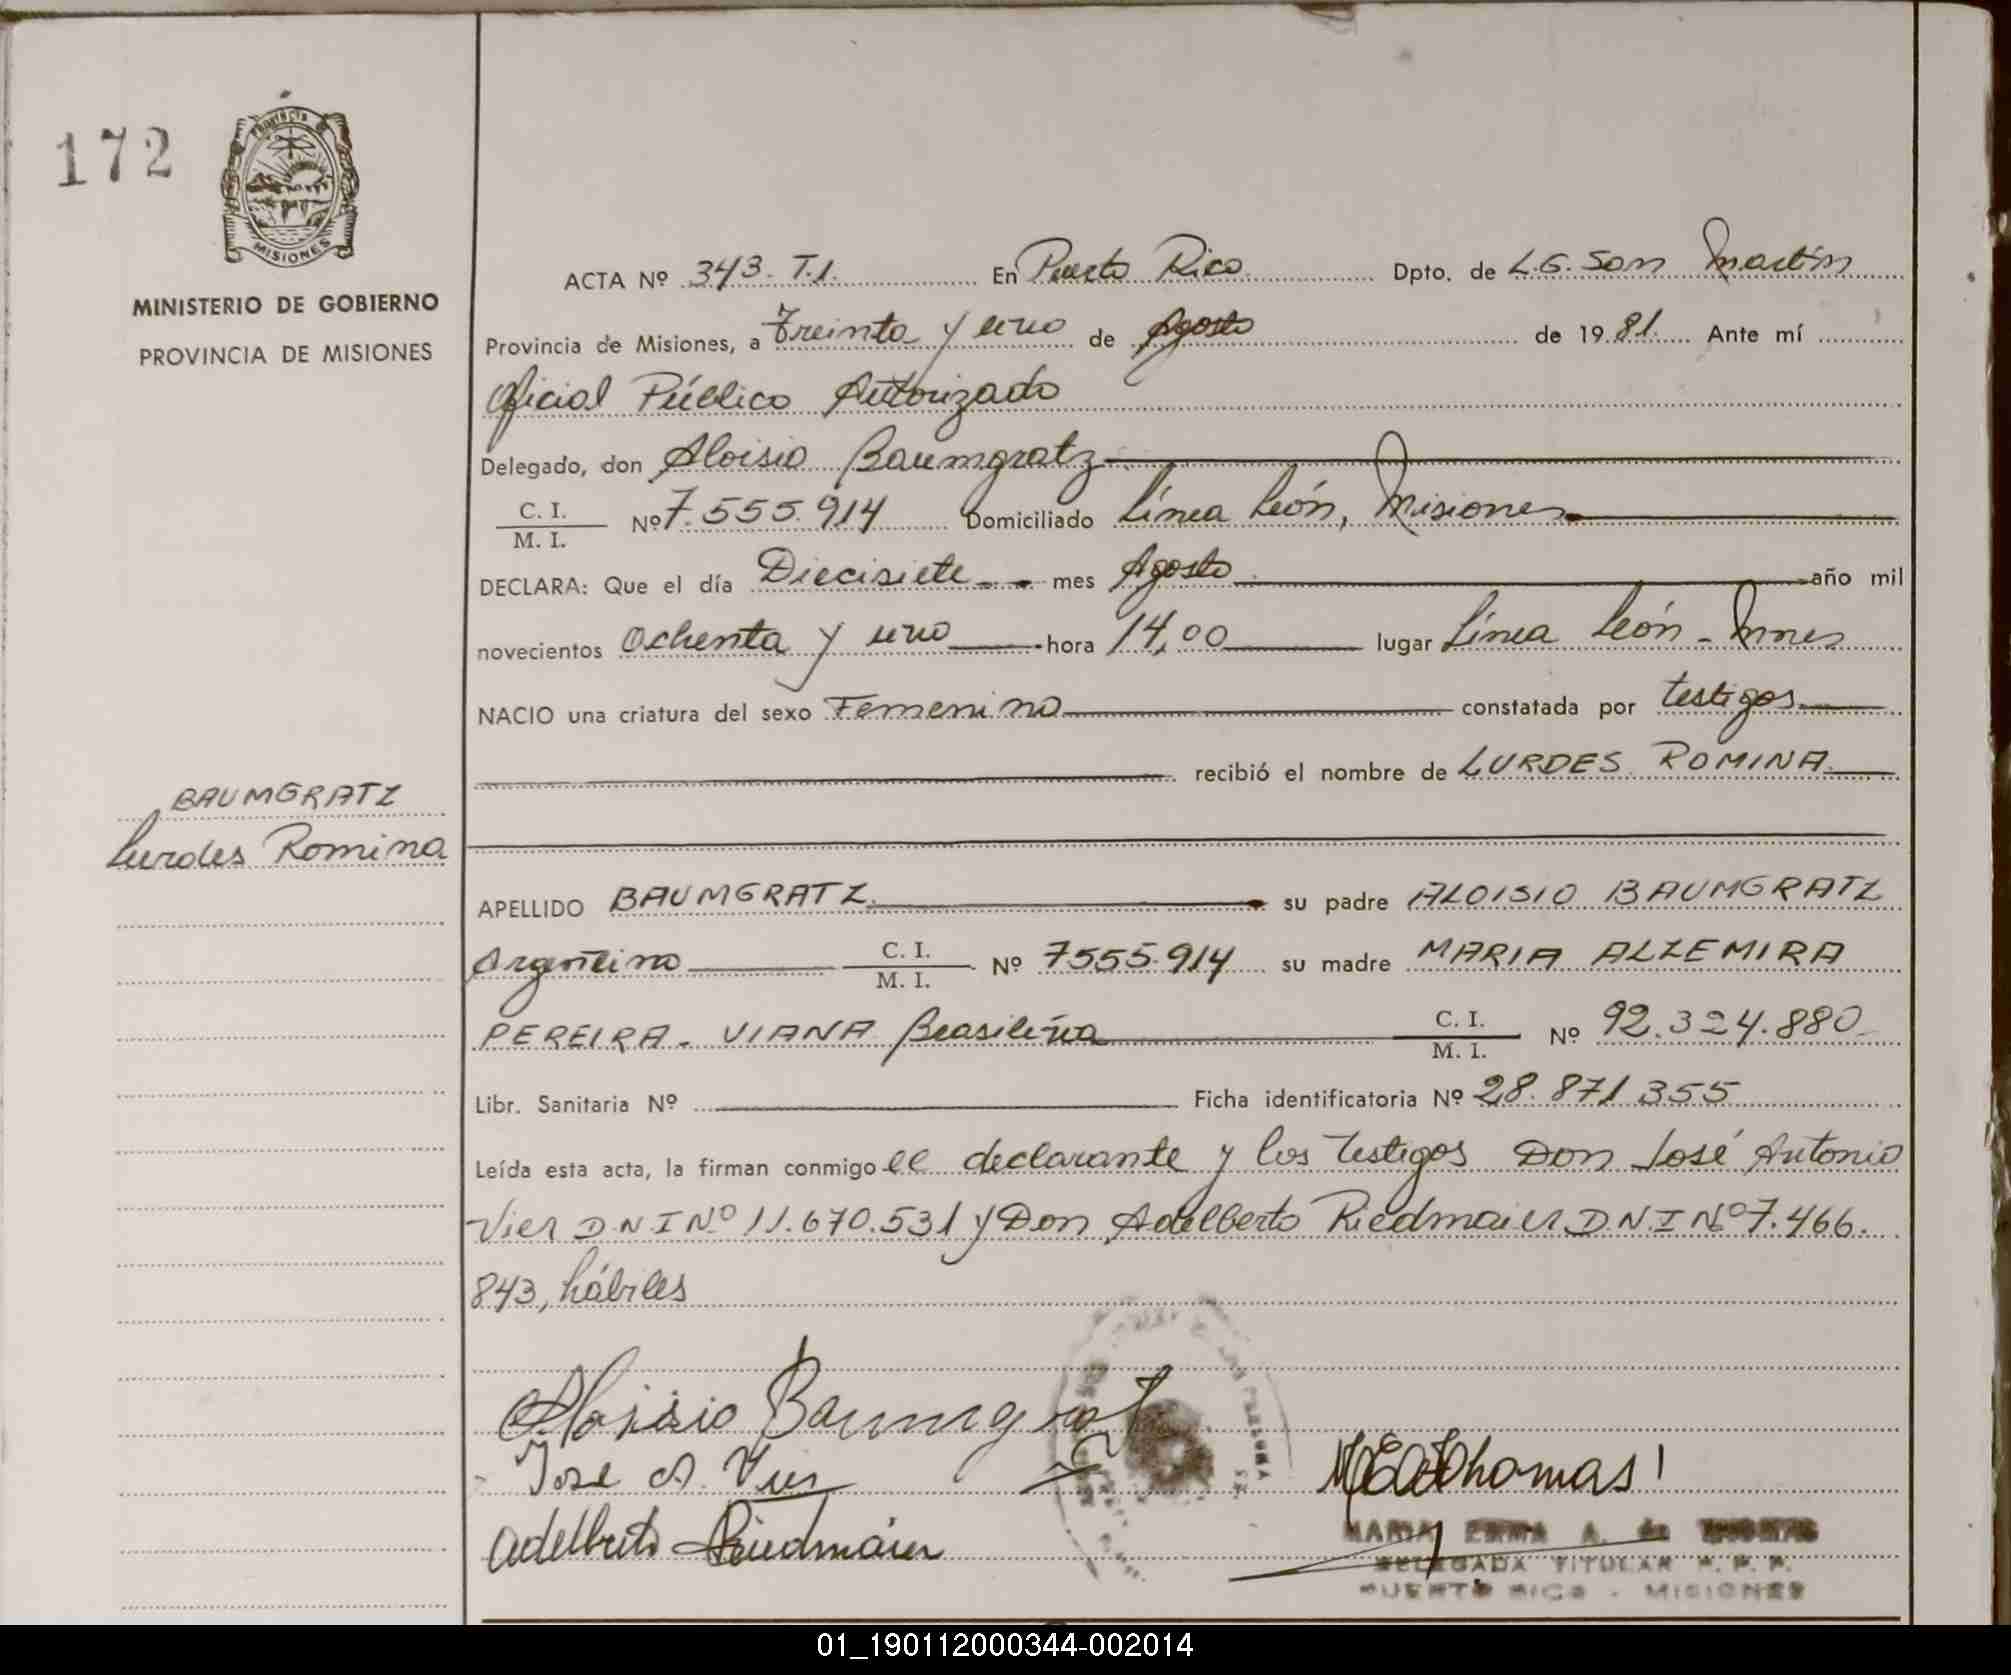 172
PROVINCIA
MISIONES
MINISTERIO DE GOBIERNO
PROVINCIA DE MISIONES
BAUMGRATZ
Lurdes Romina
ACTA Nº 343. T.1. En Puerto Rico Dpto. de L.G. San Martín
Provincia de Misiones, a Treinta y uno de Agosto de 1981. Ante mí
Oficial Público Autorizado
Delegado, don Aloisio Baumgratz
C. I.
M. I.
Nº 7.555.914 Domiciliado Línea León, Misiones
DECLARA: Que el día Diecisiete mes Agosto año mil
novecientos Ochenta y uno hora 14,00 lugar Línea León - Mnes
NACIO una criatura del sexo Femenino constatada por testigos
recibió el nombre de LURDES ROMINA
APELLIDO BAUMGRATZ su padre ALOISIO BAUMGRATZ
Argentino C. I. Nº 7555.914 su madre MARIA ALZEMIRA
M. I.
PEREIRA - VIANA Brasileña C. I. Nº 92.324.880
M. I.
Libr. Sanitaria Nº Ficha identificatoria Nº 28.871355
Leída esta acta, la firman conmigo el declarante y los testigos Don José Antonio
Vier D.N.I Nº 11.670.531 y Don Adelberto Riedmaier D.N.I Nº 7.466.
843, hábiles
Aloisio Baumgratz
Jose A. Vier
Adelberto Riedmaier
MEAThomas
MARIA ERMA A. de THOMAS
DELEGADA TITULAR R. P. P.
PUERTO RICO - MISIONES
01_190112000344-002014